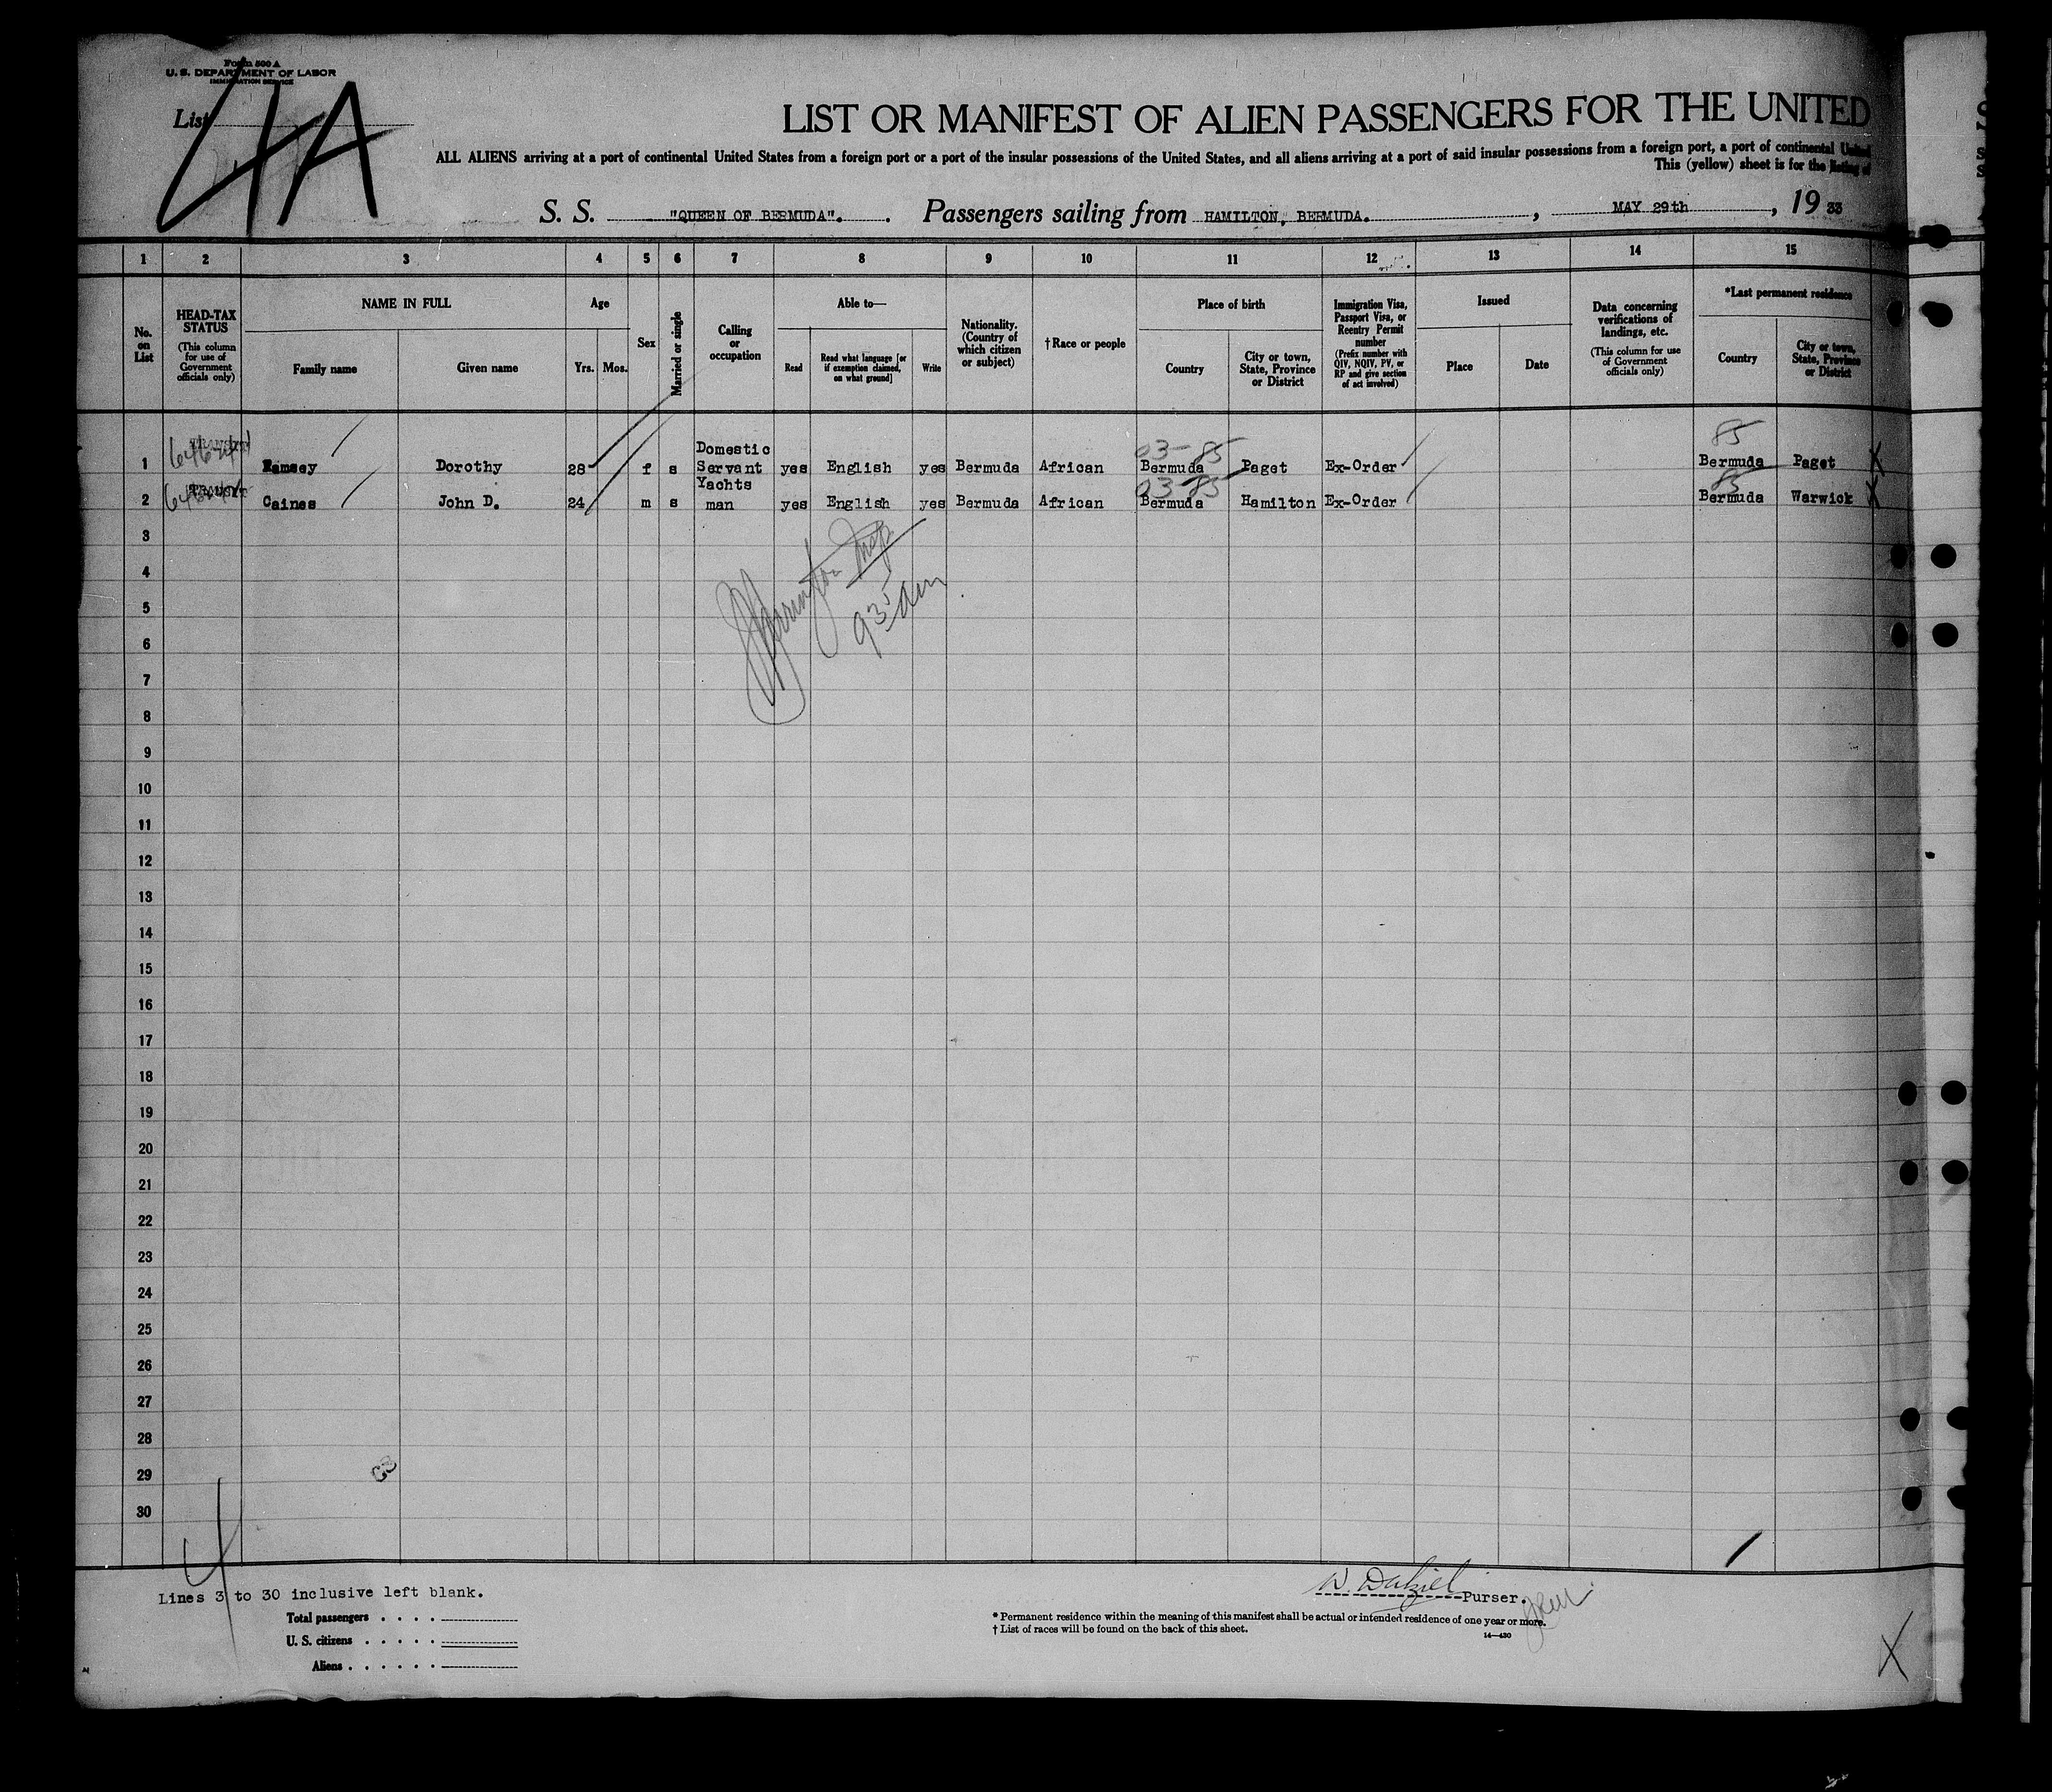 Form 500 A
U. S. DEPARTMENT OF LABOR
IMMIGRATION SERVICE
List 4A
LIST OR MANIFEST OF ALIEN PASSENGERS FOR THE UNITED
ALL ALIENS arriving at a port of continental United States from a foreign port or a port of the insular possessions of the United States, and all aliens arriving at a port of said insular possessions from a foreign port, a port of continental United
This (yellow) sheet is for the listing of
S. S. "QUEEN OF BERMUDA". Passengers sailing from HAMILTON, BERMUDA. , MAY 29th , 19 33
1 2 3 4 5 6 7 8 9 10 11 12 13 14 15
No. on List
HEAD-TAX STATUS (This column for use of Government officials only)
NAME IN FULL
Family name
Given name
Age
Yrs. Mos.
Sex
Married or single
Calling or occupation
Able to—
Read
Read what language [or if exemption claimed, on what ground]
Write
Nationality. (Country of which citizen or subject)
†Race or people
Place of birth
Country
City or town, State, Province or District
Immigration Visa, Passport Visa, or Reentry Permit number (Prefix number with QIV, NQIV, PV, or RP and give section of act involved)
Issued
Place
Date
Data concerning verifications of landings, etc. (This column for use of Government officials only)
*Last permanent residence
Country
City or town, State, Province or District
03-85 85
1 Ramsey Dorothy 28 f s Domestic Servant yes English yes Bermuda African Bermuda Paget Ex-Order Bermuda Paget X
03-85 85
2 Caines John D. 24 m s Yachts man yes English yes Bermuda African Bermuda Hamilton Ex-Order Bermuda Warwick X
3
4
935 am
5
6
7
8
9
10
11
12
13
14
15
16
17
18
19
20
21
22
23
24
25
26
27
28
29
30
Lines 3 to 30 inclusive left blank.
Total passengers . . . .
U. S. citizens . . . . .
Aliens . . . . . .
W. Dalziel Purser.
* Permanent residence within the meaning of this manifest shall be actual or intended residence of one year or more.
† List of races will be found on the back of this sheet.
14—430
X